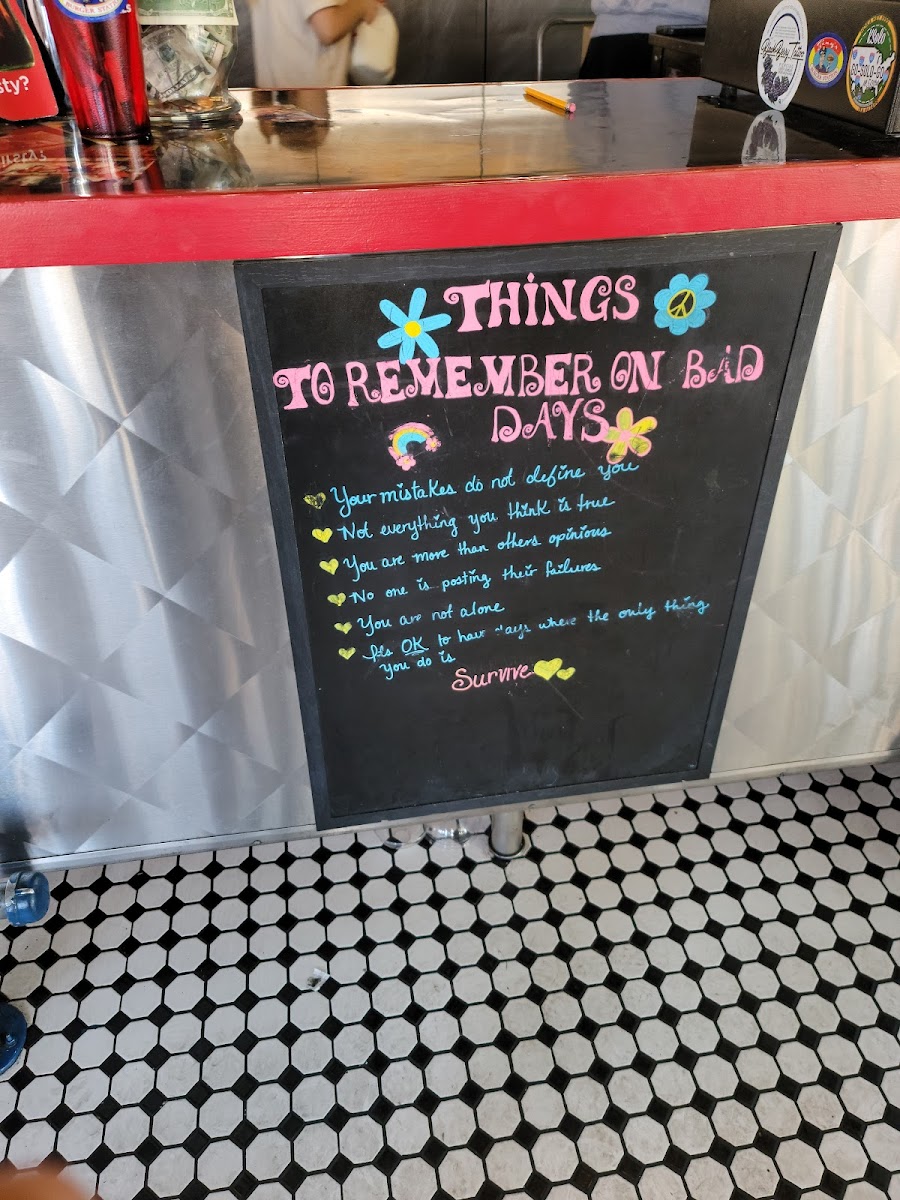 BURGER STATE
sty?
THiNGS
TO REMEMBER ON BAD
DAYS
Your mistakes do not define you
Not everything you think is true
You are more than others opinious
No one is posting their failures
You are not alone
Its OK to have days where the only thing
you do is
Survive